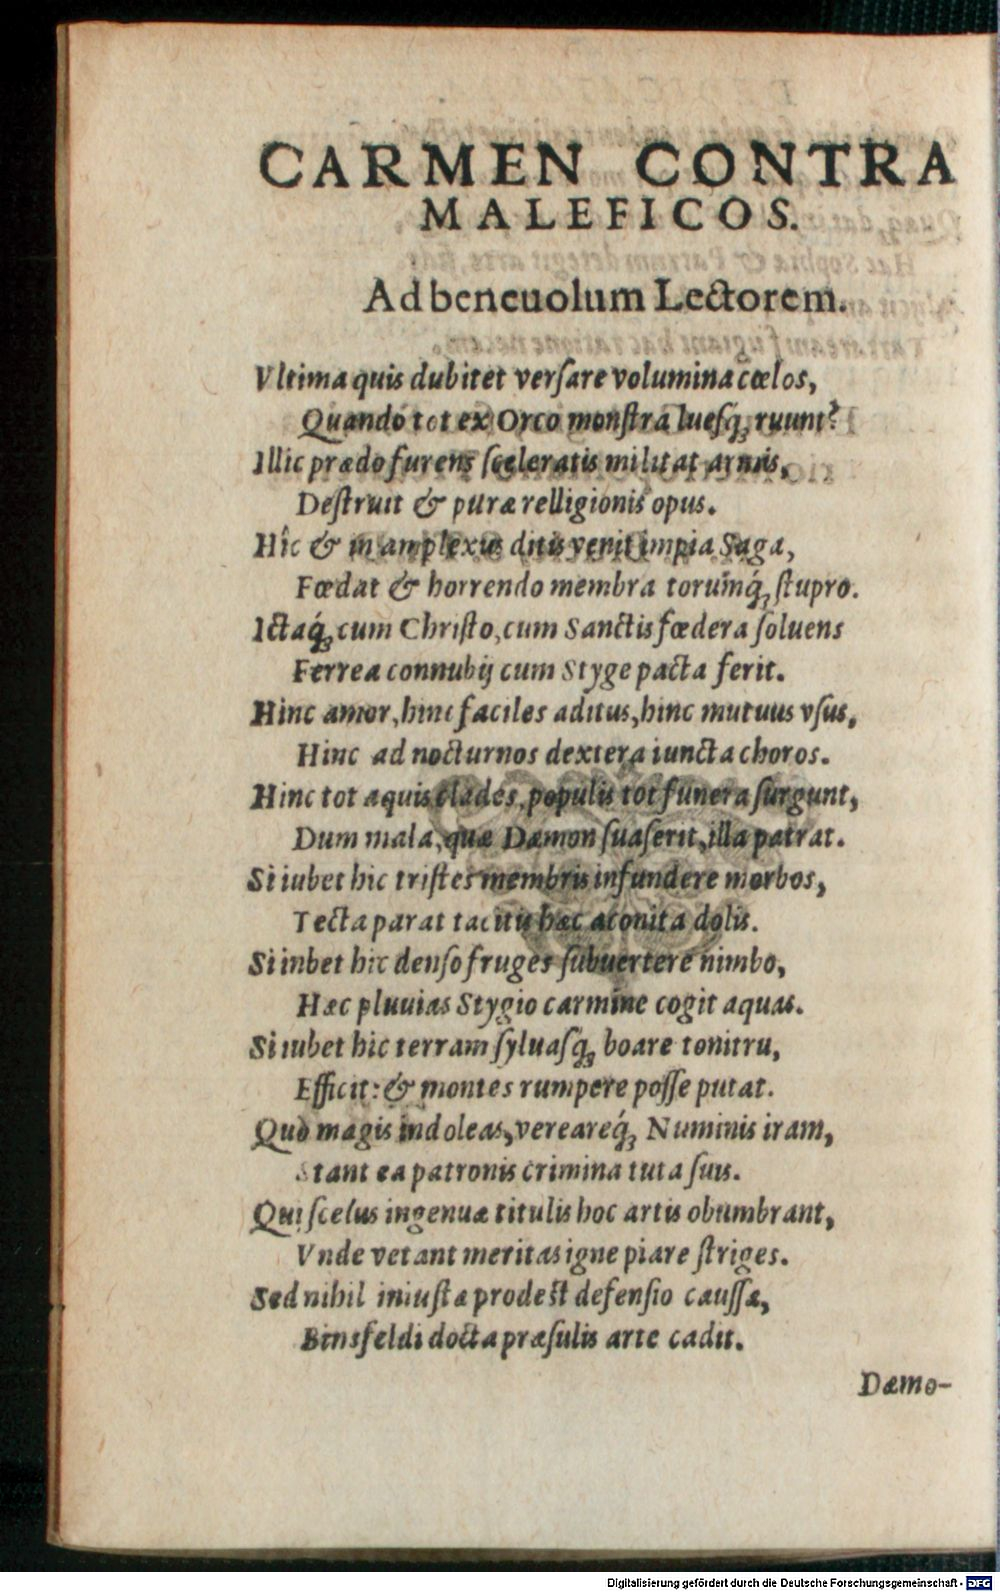 CARMEN CONTRA
MALEFICOS.
Ad beneuolum Lectorem.
Vltima quis dubitet versare volumina cœlos,
Quando tot ex Orco monstra luesq́; ruunt?
Illic prædo furens sceleratis militat armis,
Destruit & puræ relligionis opus.
Hîc & in amplexus ditis venit impia Saga,
Fœdat & horrendo membra torumq́; stupro.
Ictaq́; cum Christo, cum Sanctis fœdera soluens
Ferrea connubij cum Styge pacta ferit.
Hinc amor, hinc faciles aditus, hinc mutuus vsus,
Hinc ad nocturnos dextera iuncta choros.
Hinc tot aquis clades, populis tot funera surgunt,
Dum mala, quæ Dæmon suaserit, illa patrat.
Si iubet hic tristes membris infundere morbos,
Tecta parat tacitis hæc aconita dolis.
Si inbet hic denso fruges subuertere nimbo,
Hæc pluuias Stygio carmine cogit aquas.
Si iubet hic terram syluasq́; boare tonitru,
Efficit: & montes rumpere posse putat.
Quò magis indoleas, verearéq́; Numinis iram,
Stant ea patronis crimina tuta suis.
Qui scelus ingenuæ titulis hoc artis obumbrant,
Vnde vetant meritas igne piare striges.
Sed nihil iniustæ prodest defensio caussæ,
Binsfeldi docta præsulis arte cadit.
Dæmo-
Digitalisierung gefördert durch die Deutsche Forschungsgemeinschaft - DFG